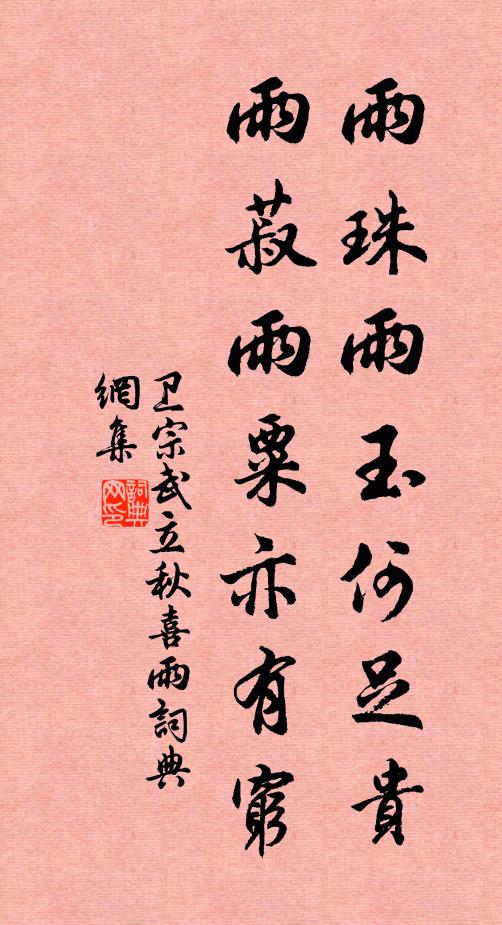 雨珠雨玉何足貴
雨菽雨粟亦有窮
卫宗武立秋喜雨詞典
網集
詞典網印